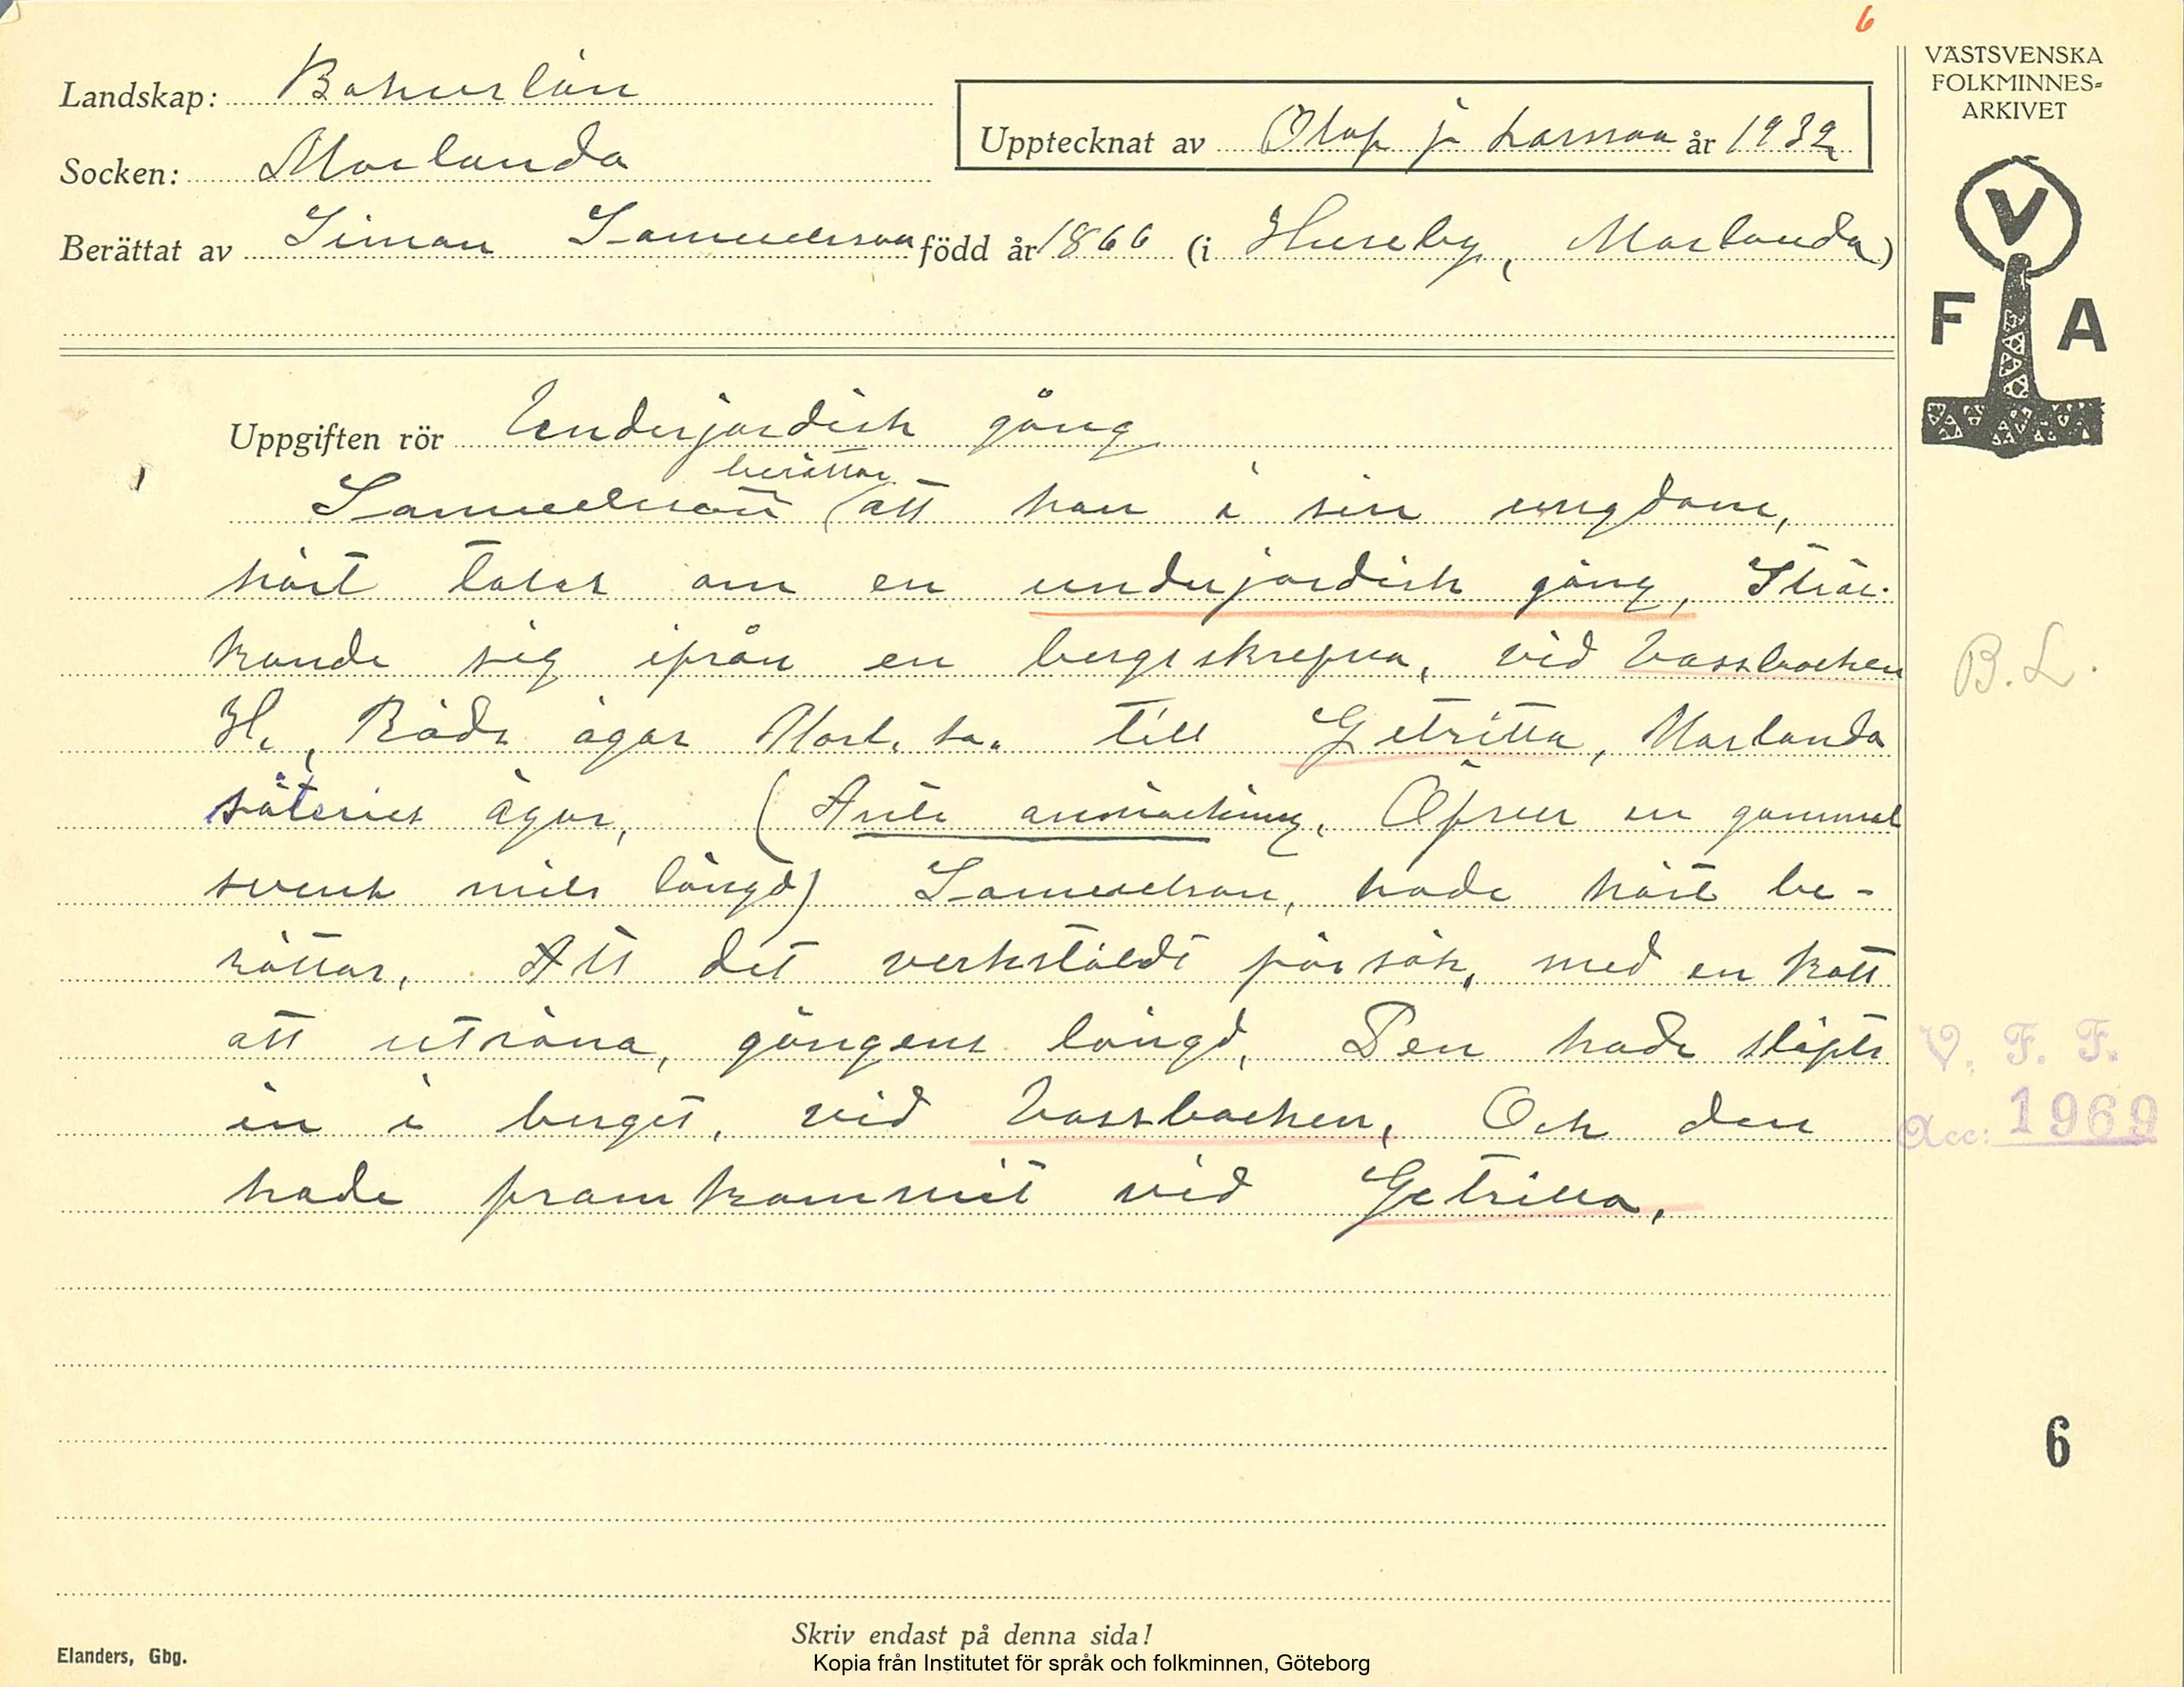 6
VÄSTSVENSKA
FOLKMINNES-
ARKIVET
V
F A
Landskap: Bohuslän
Upptecknat av Olof J. Larsson år 1932
Socken: Morlanda
Berättat av Simon Samuelsson född år 1866 (i Huseby, Morlanda)
Uppgiften rör Underjordisk gång
berättar
Samuelsson att han i sin ungdom,
hört talas om en underjordisk gång, Sträc-
kande sig ifrån en bergsskrefva, vid Vassbacken
H., Röds ägor Morl. sn. till Getritta, Morlanda
säteries ägor, (Ants anmärkning. Öfver en gammal
svensk mils längd) Samuelson, hade hört be-
rättas, Att det verkställdt försök, med en katt
att utröna, gångens längd, Den hade släpts
in i berget, vid Vassbacken, Och den
hade framkommit vid Getritta.
B. L.
V. F. F.
Acc: 1969
6
Skriv endast på denna sida!
Elanders, Gbg.
Kopia från Institutet för språk och folkminnen, Göteborg